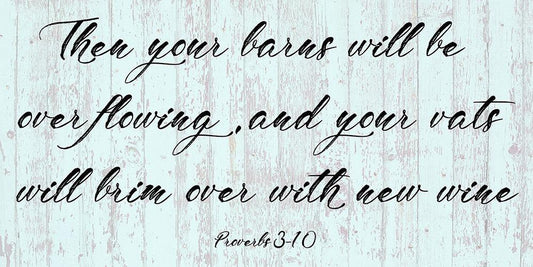 Then your barns will be
overflowing ,and your vats
will brim over with new wine
Proverbs 3-10